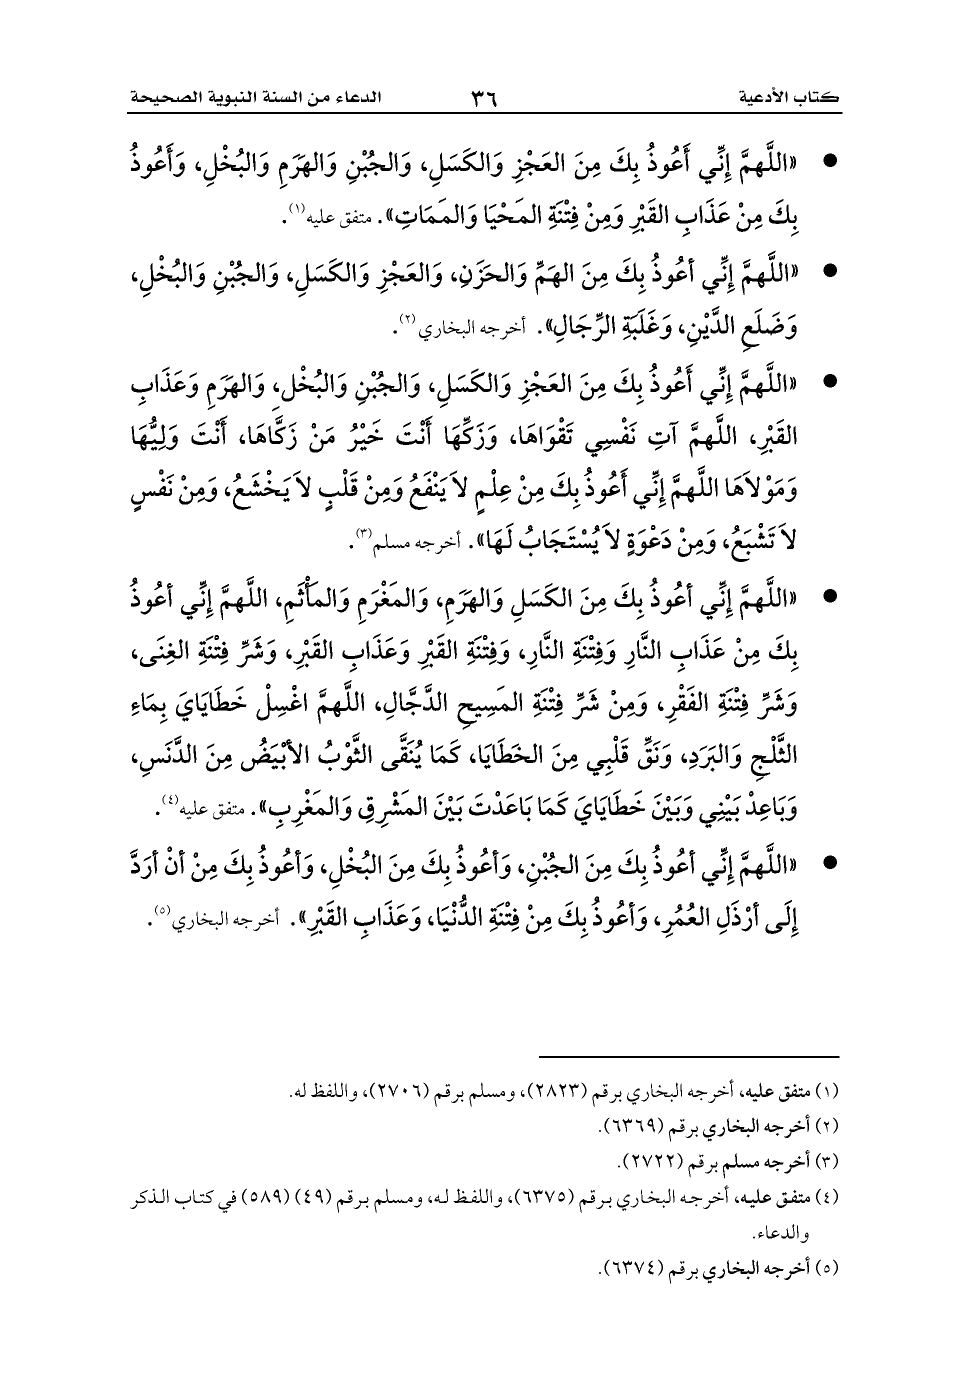 كتاب الأدعية ٣٦ الدعاء من السنة النبوية الصحيحة
● «اللَّهمَّ إِنِّي أَعُوذُ بِكَ مِنَ العَجْزِ وَالكَسَلِ، وَالجُبْنِ وَالهَرَمِ وَالبُخْلِ، وَأَعُوذُ
بِكَ مِنْ عَذَابِ القَبْرِ وَمِنْ فِتْنَةِ المَحْيَا وَالمَمَاتِ». متفق عليه(١).
● «اللَّهمَّ إِنِّي أعُوذُ بِكَ مِنَ الهَمِّ وَالحَزَنِ، وَالعَجْزِ وَالكَسَلِ، وَالجُبْنِ وَالبُخْلِ،
وَضَلَعِ الدَّيْنِ، وَغَلَبَةِ الرِّجَالِ». أخرجه البخاري(٢).
● «اللَّهمَّ إِنِّي أَعُوذُ بِكَ مِنَ العَجْزِ وَالكَسَلِ، وَالجُبْنِ وَالبُخْلِ، وَالهَرَمِ وَعَذَابِ
القَبْرِ، اللَّهمَّ آتِ نَفْسِي تَقْوَاهَا، وَزَكِّهَا أَنْتَ خَيْرُ مَنْ زَكَّاهَا، أَنْتَ وَلِيُّهَا
وَمَوْلاَهَا اللَّهمَّ إِنِّي أَعُوذُ بِكَ مِنْ عِلْمٍ لاَ يَنْفَعُ وَمِنْ قَلْبٍ لاَ يَخْشَعُ، وَمِنْ نَفْسٍ
لاَ تَشْبَعُ، وَمِنْ دَعْوَةٍ لاَ يُسْتَجَابُ لَهَا». أخرجه مسلم(٣).
● «اللَّهمَّ إِنِّي أعُوذُ بِكَ مِنَ الكَسَلِ وَالهَرَمِ، وَالمَغْرَمِ وَالمَأْثَمِ، اللَّهمَّ إِنِّي أعُوذُ
بِكَ مِنْ عَذَابِ النَّارِ وَفِتْنَةِ النَّارِ، وَفِتْنَةِ القَبْرِ وَعَذَابِ القَبْرِ، وَشَرِّ فِتْنَةِ الغِنَى،
وَشَرِّ فِتْنَةِ الفَقْرِ، وَمِنْ شَرِّ فِتْنَةِ المَسِيحِ الدَّجَّالِ، اللَّهمَّ اغْسِلْ خَطَايَايَ بِمَاءِ
الثَّلْجِ وَالبَرَدِ، وَنَقِّ قَلْبِي مِنَ الخَطَايَا، كَمَا يُنَقَّى الثَّوْبُ الأبْيَضُ مِنَ الدَّنَسِ،
وَبَاعِدْ بَيْنِي وَبَيْنَ خَطَايَايَ كَمَا بَاعَدْتَ بَيْنَ المَشْرِقِ وَالمَغْرِبِ». متفق عليه(٤).
● «اللَّهمَّ إِنِّي أعُوذُ بِكَ مِنَ الجُبْنِ، وَأعُوذُ بِكَ مِنَ البُخْلِ، وَأعُوذُ بِكَ مِنْ أنْ أرَدَّ
إِلَى أرْذَلِ العُمُرِ، وَأَعُوذُ بِكَ مِنْ فِتْنَةِ الدُّنْيَا، وَعَذَابِ القَبْرِ». أخرجه البخاري(٥).
(١) متفق عليه، أخرجه البخاري برقم (٢٨٢٣)، ومسلم برقم (٢٧٠٦)، واللفظ له.
(٢) أخرجه البخاري برقم (٦٣٦٩).
(٣) أخرجه مسلم برقم (٢٧٢٢).
(٤) متفق عليه، أخرجه البخاري برقم (٦٣٧٥)، واللفظ له، ومسلم برقم (٤٩) (٥٨٩) في كتاب الذكر
والدعاء.
(٥) أخرجه البخاري برقم (٦٣٧٤).